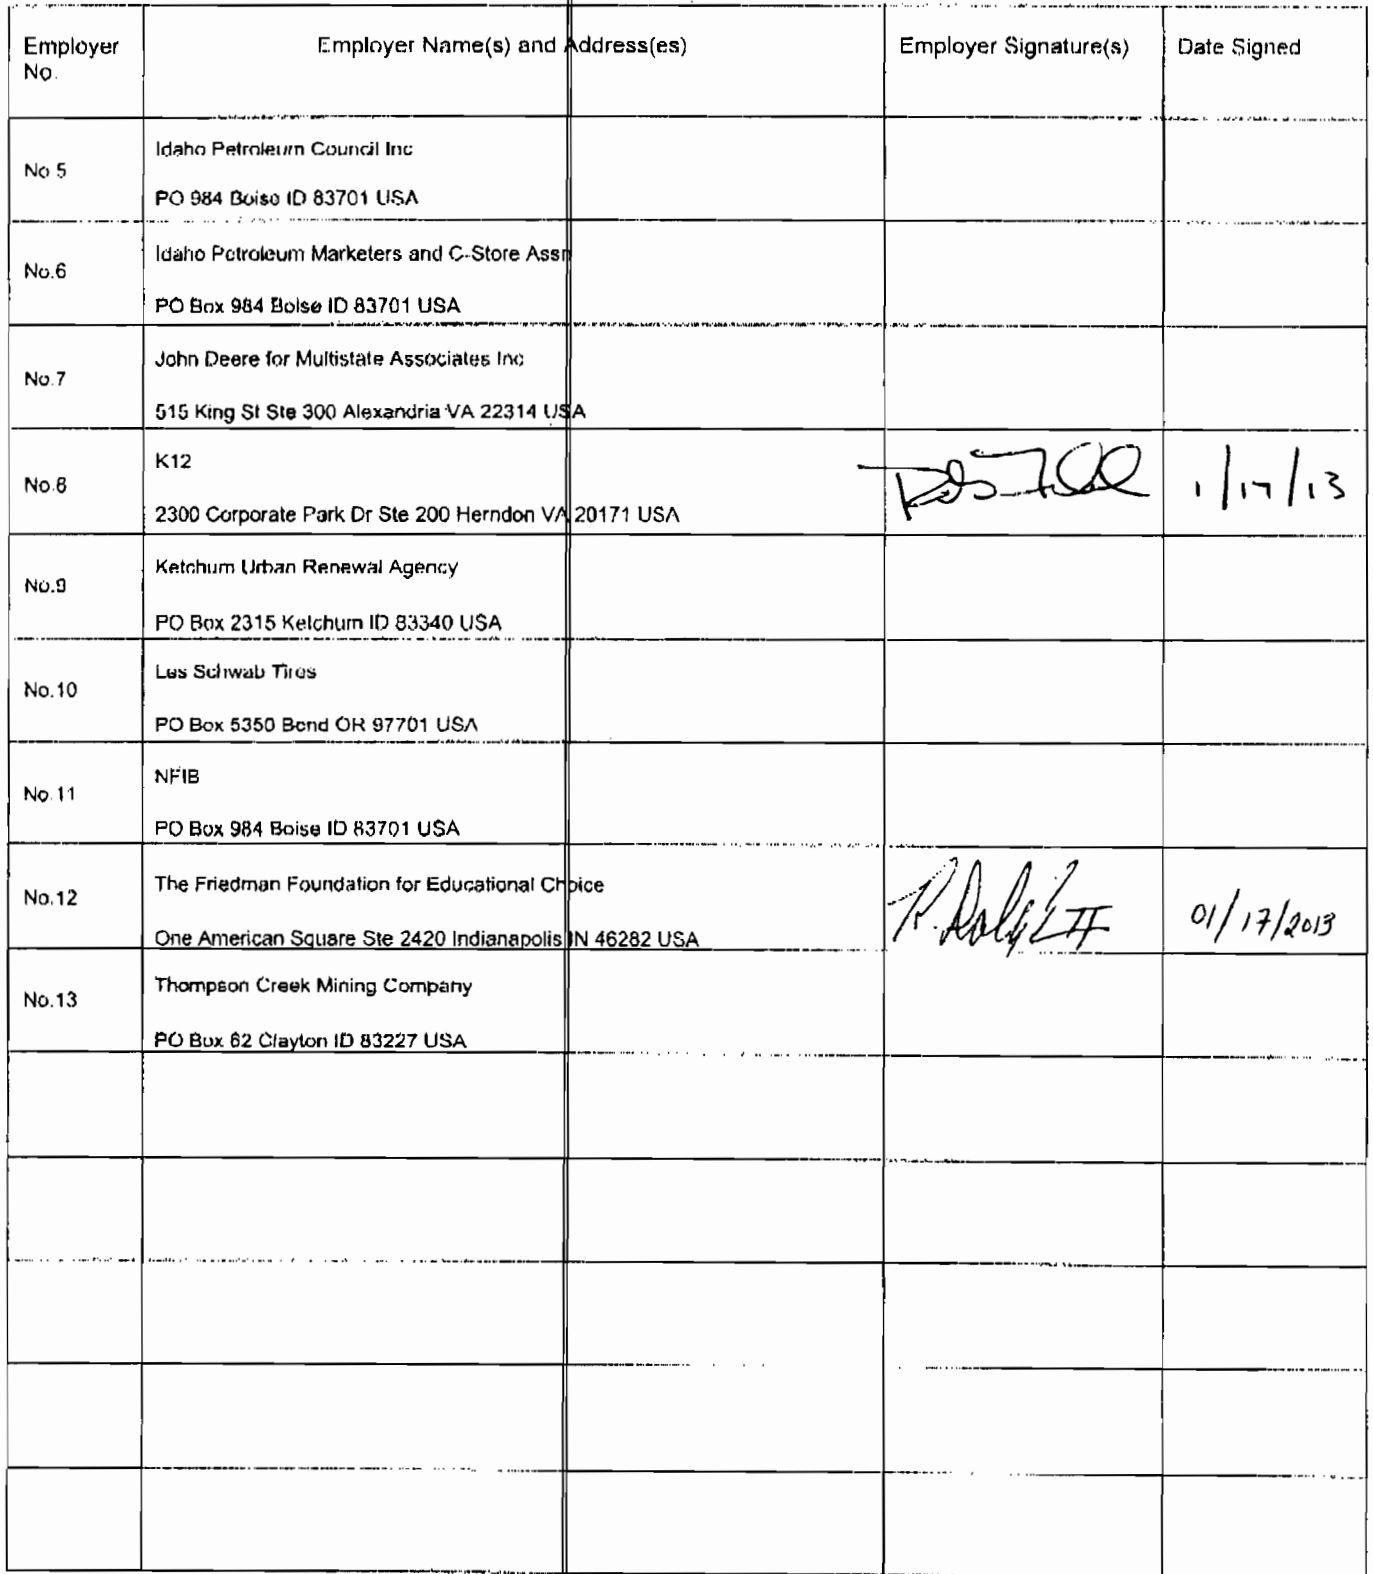 Employer No. Employer Name(s) and Address(es) Employer Signature(s) Date Signed
No.5
Idaho Petroleum Council Inc
PO 984 Boise ID 83701 USA
No.6
Idaho Petroleum Marketers and C-Store Assn
PO Box 984 Boise ID 83701 USA
No.7
John Deere for Multistate Associates Inc
515 King St Ste 300 Alexandria VA 22314 USA
No.8
K12
2300 Corporate Park Dr Ste 200 Herndon VA 20171 USA
1/17/13
No.9
Ketchum Urban Renewal Agency
PO Box 2315 Ketchum ID 83340 USA
No.10
Les Schwab Tires
PO Box 5350 Bend OR 97701 USA
No.11
NFIB
PO Box 984 Boise ID 83701 USA
No.12
The Friedman Foundation for Educational Choice
One American Square Ste 2420 Indianapolis IN 46282 USA
01/17/2013
No.13
Thompson Creek Mining Company
PO Box 62 Clayton ID 83227 USA